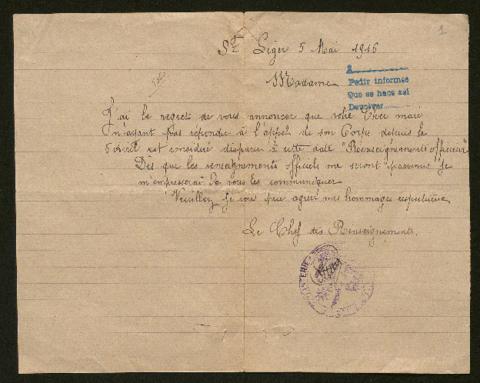 1
St Léger 5 Mai 1916
Madame
Pedir informes
Que se hace asi
Devolver
J'ai le regret de vous annoncer que votre mari
n'ayant pas repondu à l'appel de son Corps depuis le
est considéré disparu à cette date "Renseignements officieux"
Dès que les renseignements officiels me seront parvenus je
m'empresserai de vous les communiquer
Veuillez je vous prie agréer mes hommages respectueux
Le Chef des Renseignements.